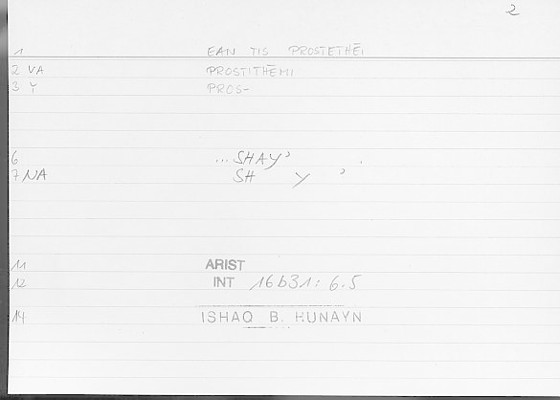 2
1 EAN TIS PROSTETHĒI
2 VA PROSTITHĒMI
3 Y PROS-
6 ...SHAY'
7 NA SH Y '
11 ARIST
12 INT 16b31: 6.5
14 ISHAQ B. HUNAYN